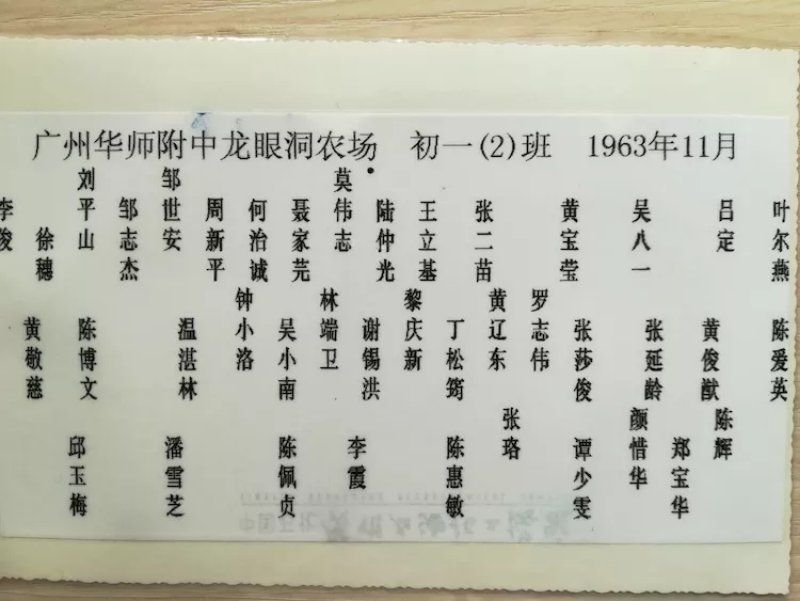 广州华师附中龙眼洞农场 初一(2)班 1963年11月
李俊
徐穗
刘平山
邹志杰
邹世安
周新平
何治诚
聂家芫
莫伟志
陆仲光
王立基
张二苗
黄宝莹
吴八一
吕定
叶尔燕
黄敬慈
陈博文
温湛林
钟小洛
吴小南
林端卫
谢锡洪
黎庆新
丁松筠
黄辽东
罗志伟
张莎俊
张延龄
黄俊猷
陈爱英
邱玉梅
潘雪芝
陈佩贞
李霞
陈惠敏
张珞
谭少雯
颜惜华
郑宝华
陈辉
中国石化